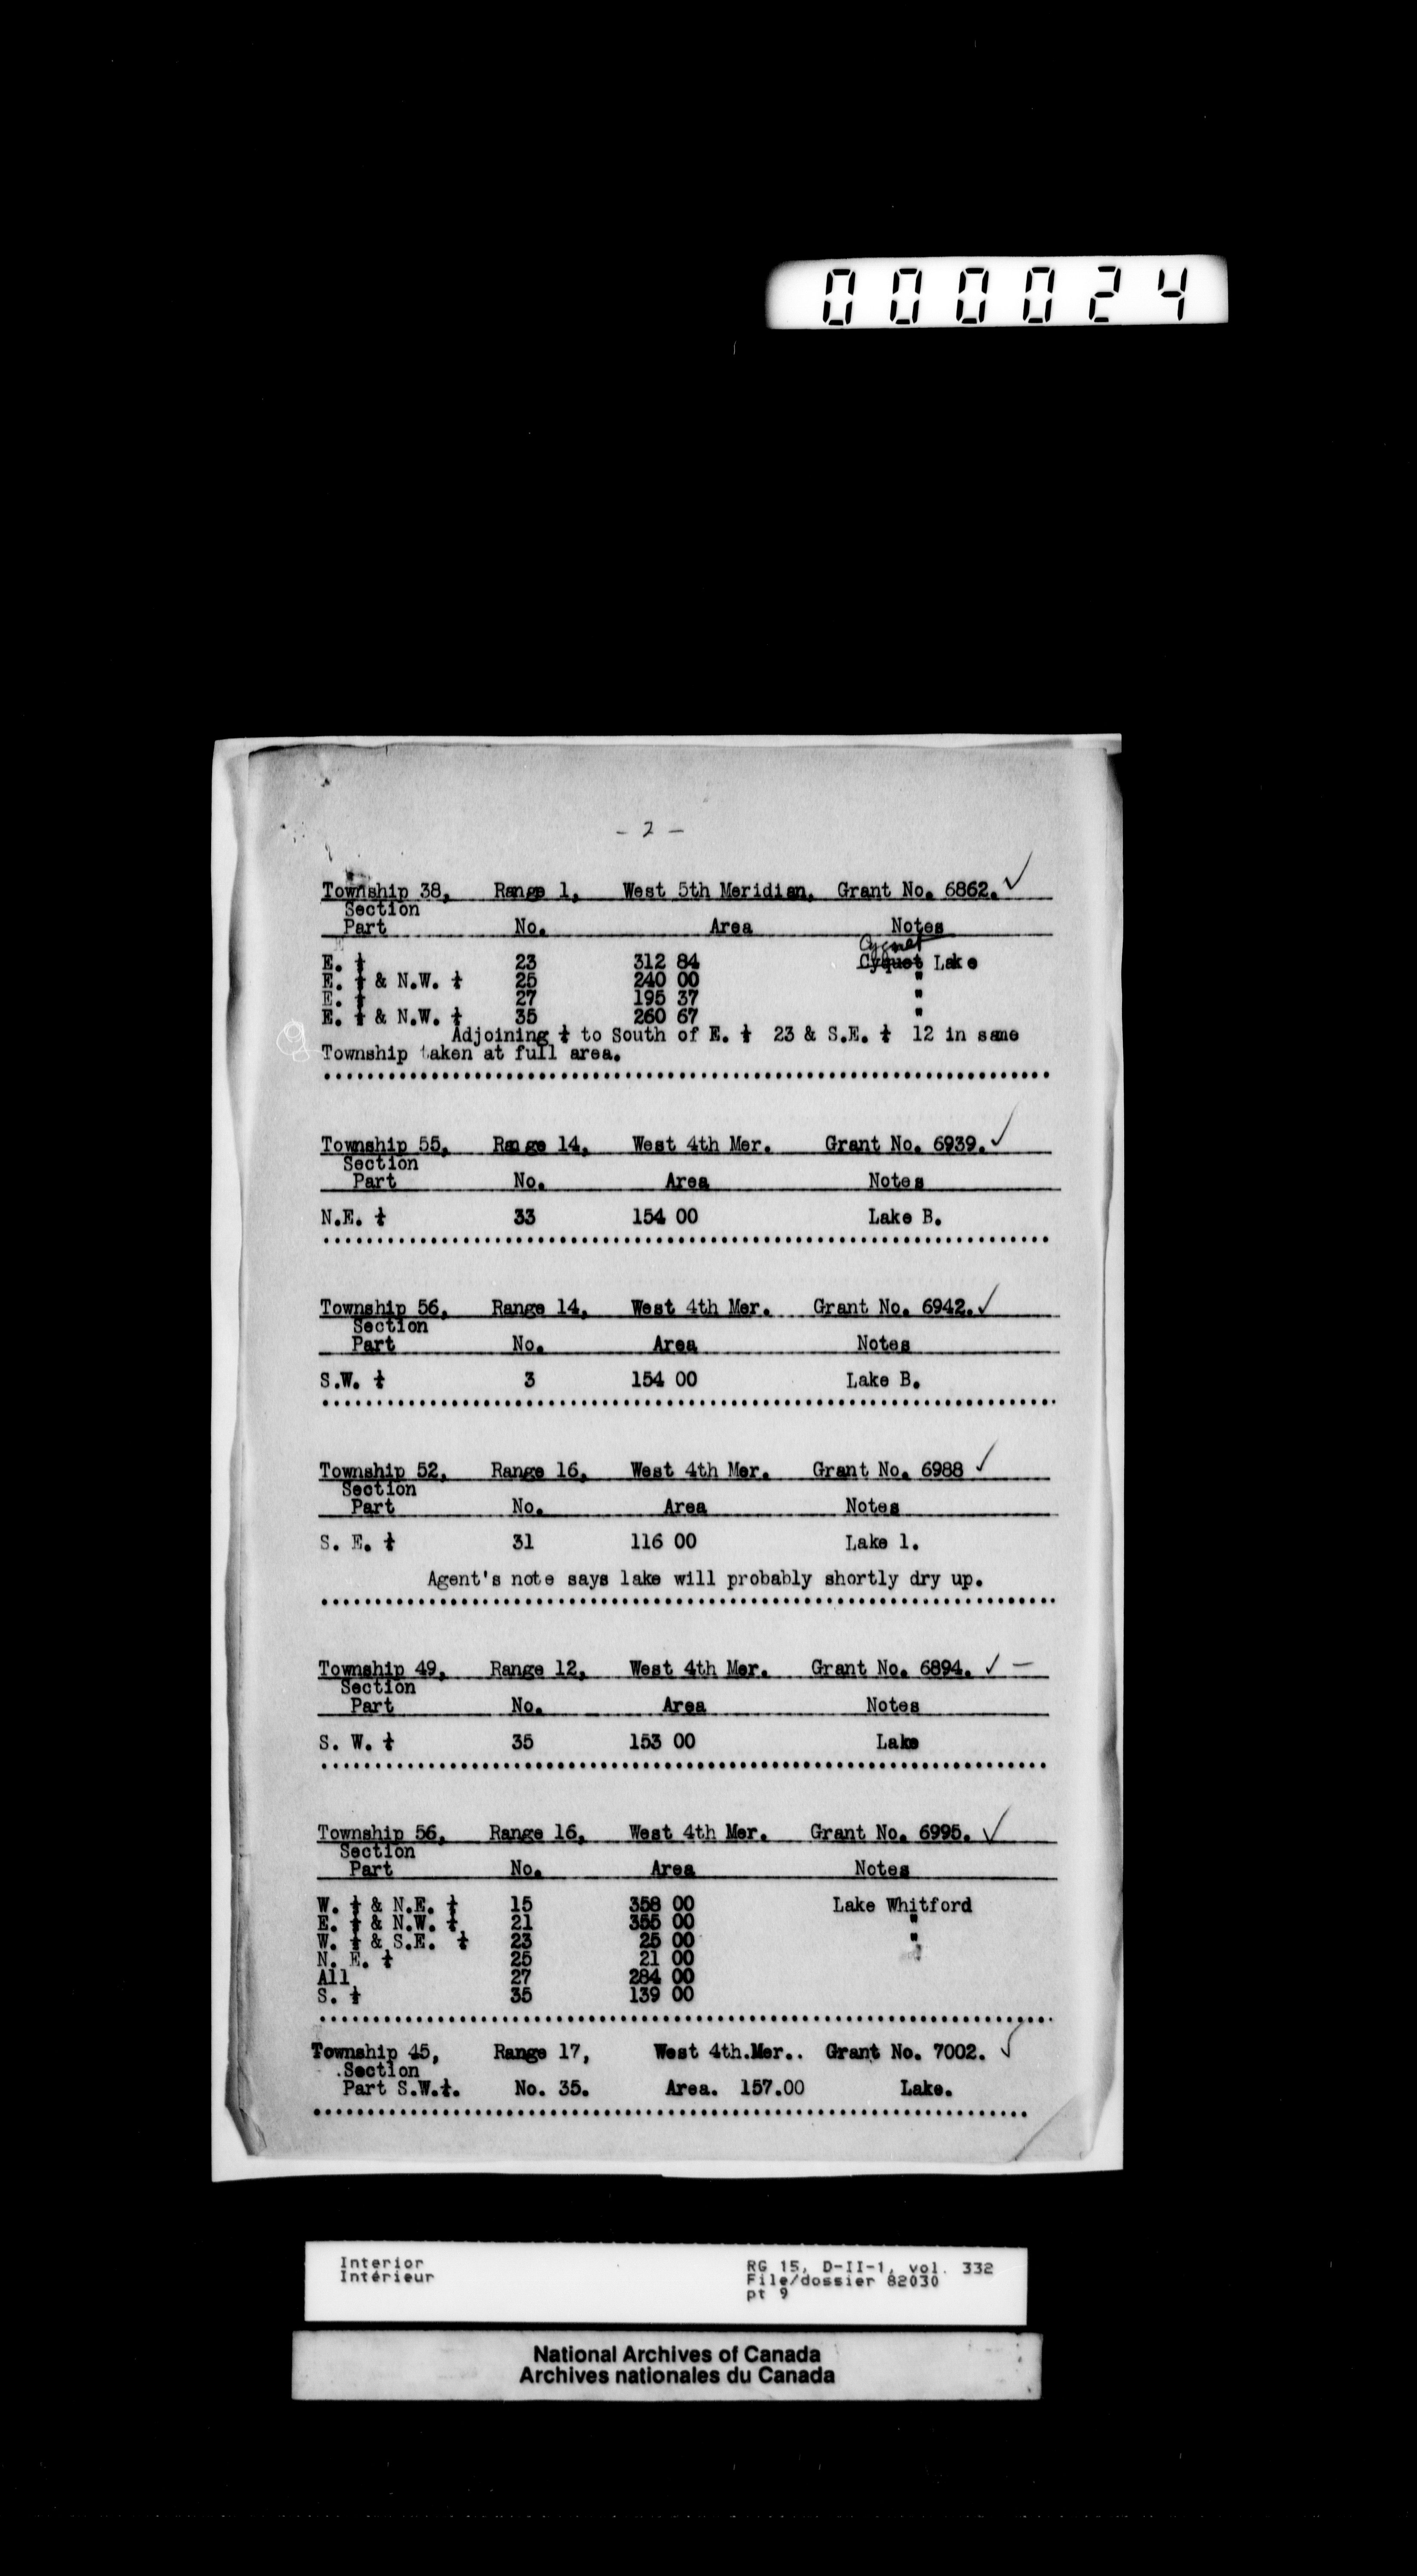 000024
- 2 -
Township 38, Range 1, West 5th Meridian, Grant No. 6862. ✓
Section
Part No. Area Notes
Cygnet
E. ½ 23 312 84 Cyquet Lake
E. ½ & N.W. ¼ 25 240 00 "
E. ½ 27 195 37 "
E. ½ & N.W. ¼ 35 260 67 "
Adjoining ¼ to South of E. ½ 23 & S.E. ¼ 12 in same
Township taken at full area.
Township 55, Range 14, West 4th Mer. Grant No. 6939. ✓
Section
Part No. Area Notes
N.E. ¼ 33 154 00 Lake B.
Township 56, Range 14, West 4th Mer. Grant No. 6942. ✓
Section
Part No. Area Notes
S.W. ¼ 3 154 00 Lake B.
Township 52, Range 16, West 4th Mer. Grant No. 6988 ✓
Section
Part No. Area Notes
S. E. ¼ 31 116 00 Lake 1.
Agent's note says lake will probably shortly dry up.
Township 49, Range 12, West 4th Mer. Grant No. 6894. ✓ –
Section
Part No. Area Notes
S. W. ¼ 35 153 00 Lake
Township 56, Range 16, West 4th Mer. Grant No. 6995. ✓
Section
Part No. Area Notes
W. ½ & N.E. ¼ 15 358 00 Lake Whitford
E. ½ & N.W. ¼ 21 355 00 "
W. ½ & S.E. ¼ 23 25 00 "
N. E. ¼ 25 21 00
All 27 284 00
S. ½ 35 139 00
Township 45, Range 17, West 4th.Mer.. Grant No. 7002. ✓
.Section
Part S.W.¼. No. 35. Area. 157.00 Lake.
Interior RG 15, D-II-1, vol. 332
Intérieur File/dossier 82030
pt 9
National Archives of Canada
Archives nationales du Canada